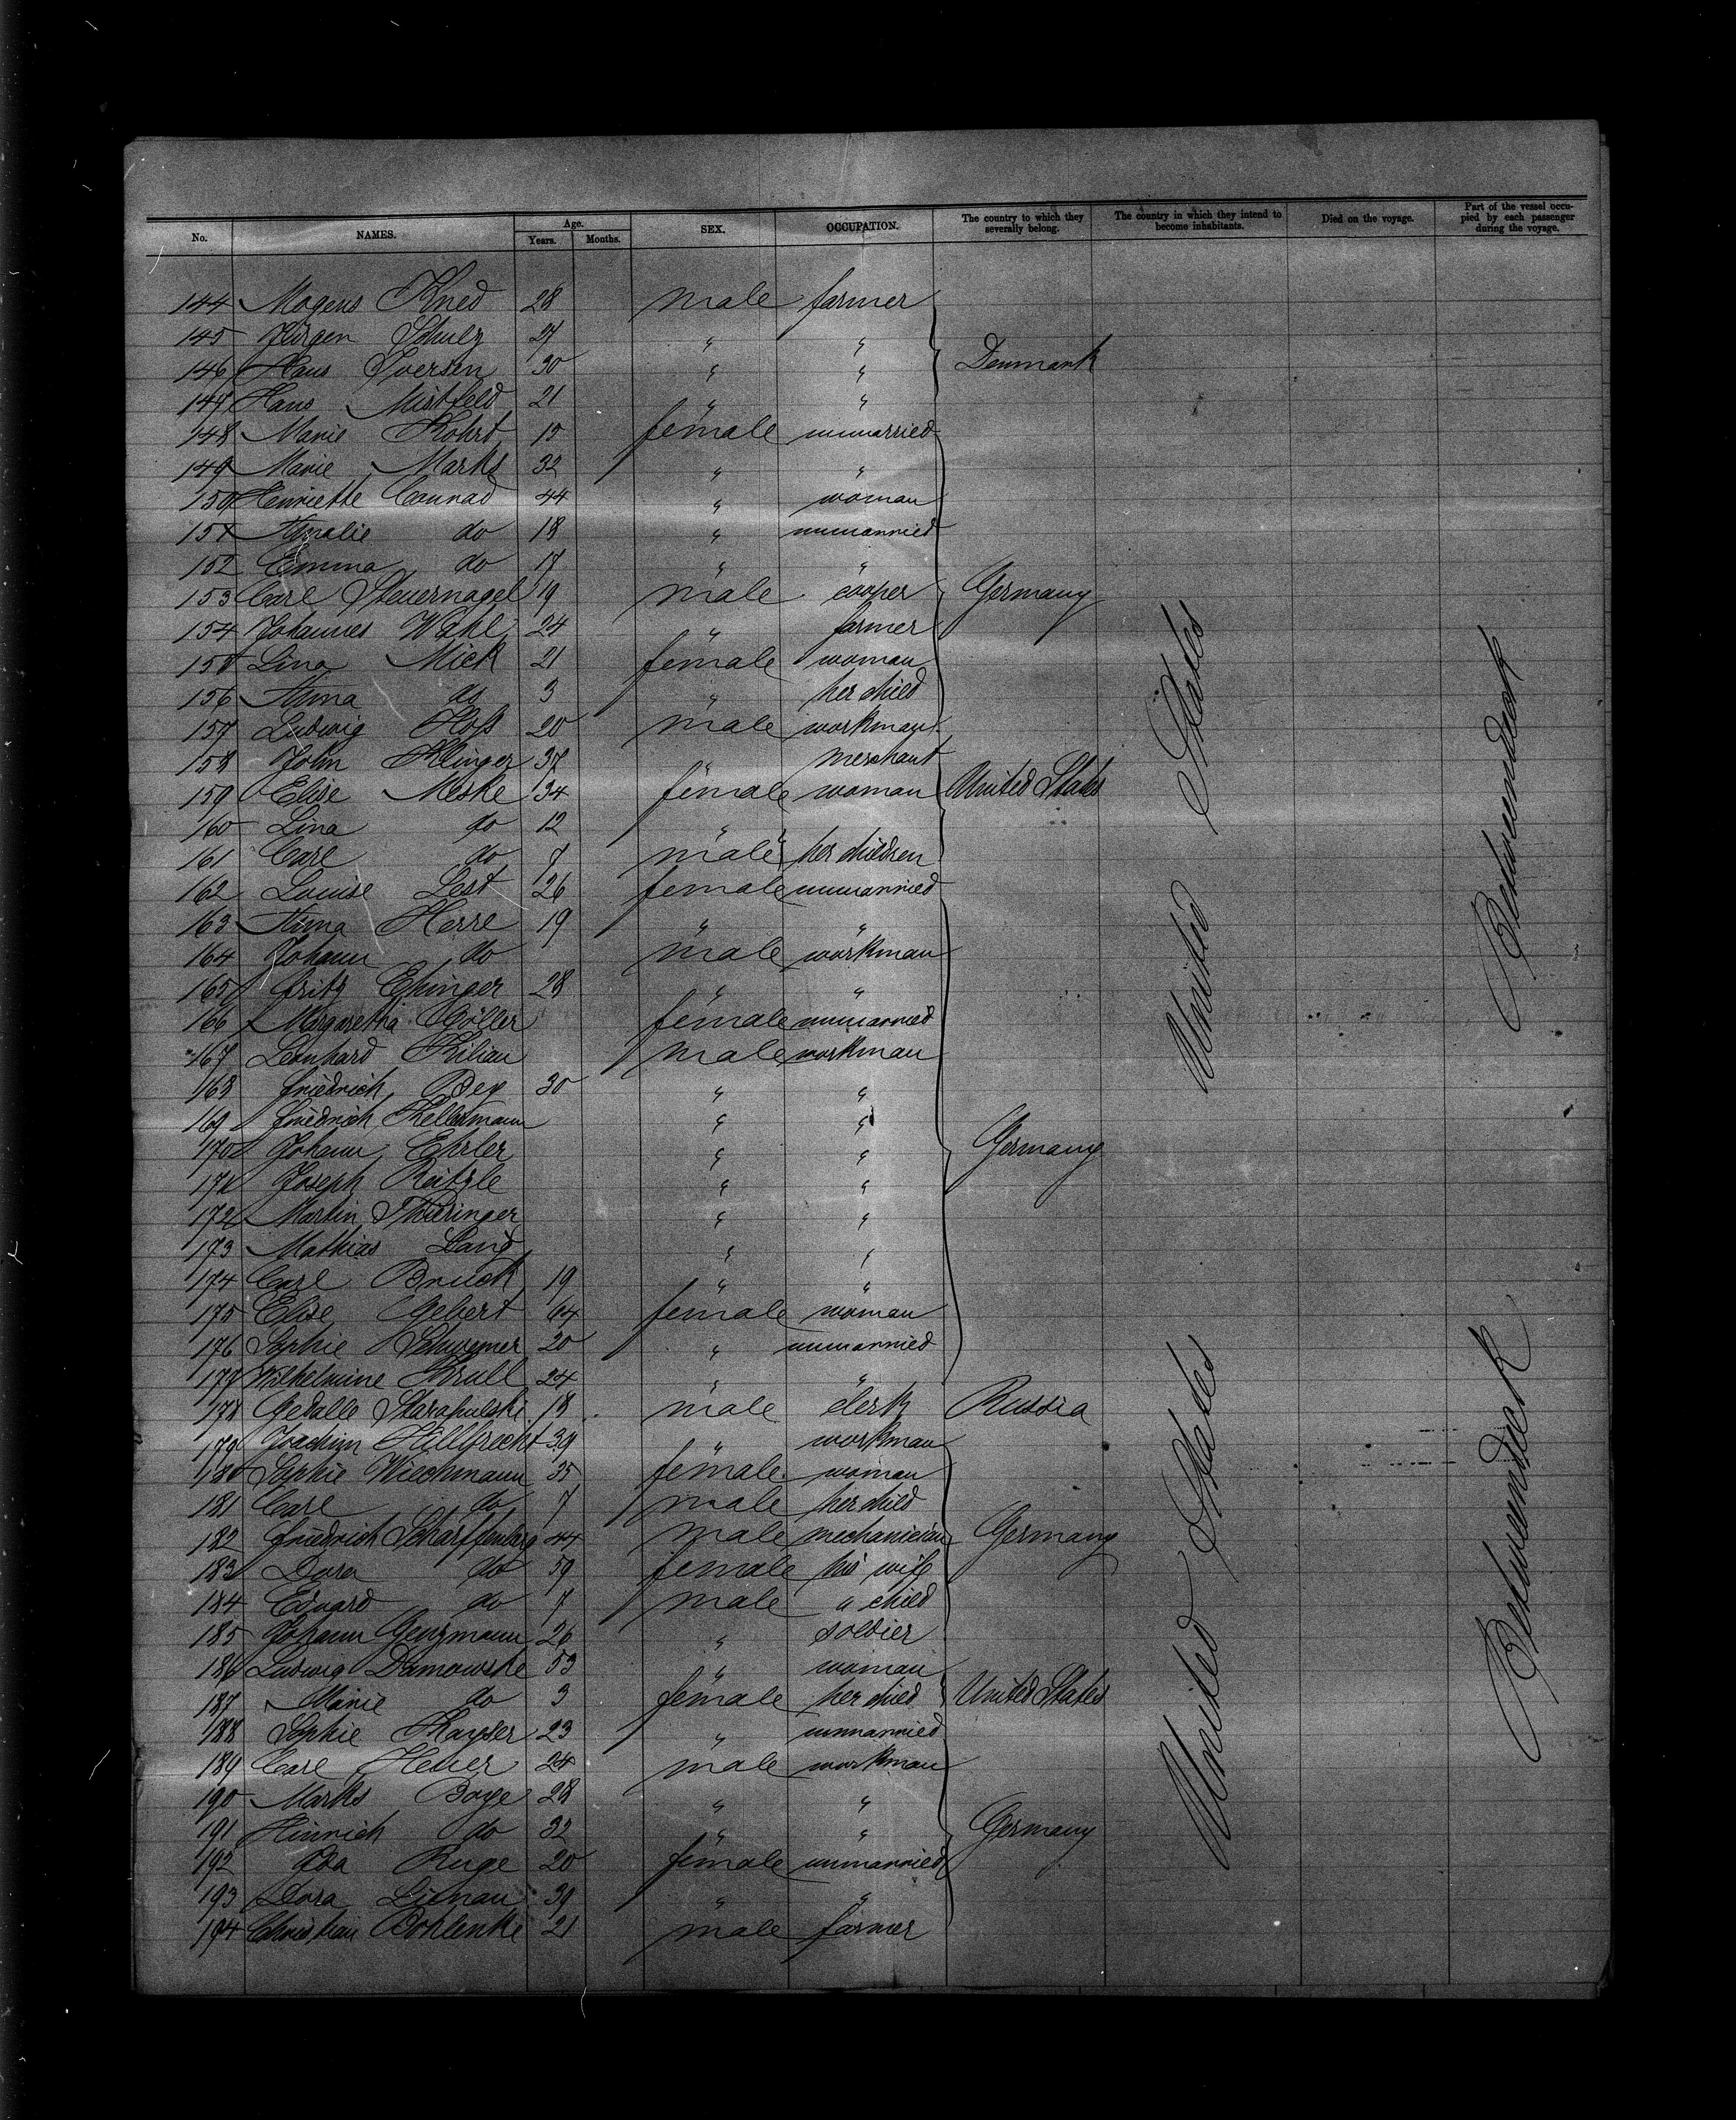 No. NAMES. Age. Years. Months. SEX. OCCUPATION. The country to which they severally belong. The country in which they intend to become inhabitants. Died on the voyage. Part of the vessel occupied by each passenger during the voyage.
144 Mogens Kned 28 male farmer
145 Jürgen Schulz 27 " "
146 Hans Iversen 30 " " Denmark
147 Hans Mistfeld 21 " "
148 Marie Kohrt 15 female unmarried
149 Marie Marks 32 " "
150 Henriette Conrad 44 " woman
151 Amalie do 18 " unmarried
152 Emma do 17 " "
153 Carl Steuernagel 19 male cooper Germany
154 Johannes Wahl 24 " farmer
155 Lina Mick 21 female woman
156 Anna do 3 " her child
157 Ludwig Hoß 20 male workman
158 John Klinger 37 " merchant
159 Elise Meske 34 female woman United States
160 Lina do 12 " "
161 Carl do 7 male her children
162 Louise Lest 26 female unmarried
163 Anna Herre 19 " "
164 Johann do male workman
165 Fritz Ehinger 28 " "
166 Margaretha Höller female unmarried
167 Leonhard Kilian male workman
168 Friedrich Bey 30 " "
169 Friedrich Kellermann " "
170 Johann Ehrler " " Germany
171 Joseph Reitzle " "
172 Martin Thüringer " "
173 Mathias Lang " "
174 Carl Bruck 19 " "
175 Elise Gebert 64 female woman
176 Sophie Schwemer 20 " unmarried
177 Wilhelmine Krull 24 " "
178 Gedalle Starapulski 18 male clerk Russia
179 Joachim Hillbrecht 39 " workman
180 Sophie Wiechmann 35 female woman
181 Carl do 7 male her child
182 Friedrich Scharffenberg 44 male mechanician Germany
183 Dora do 59 female his wife
184 Eduard do 7 male " child
185 Johann Genzmann 26 " soldier
186 Ludwig Damowske 53 " woman
187 Marie do 3 female her child United States
188 Sophie Kayser 23 " unmarried
189 Carl Heuer 24 male workman
190 Marks Boye 28 " "
191 Hinrich do 32 " " Germany
192 Ida Ruge 20 female unmarried
193 Dora Lienau 39 " "
194 Christian Bohlenke 21 male farmer
United States
United States
Betweendeck
Betweendeck